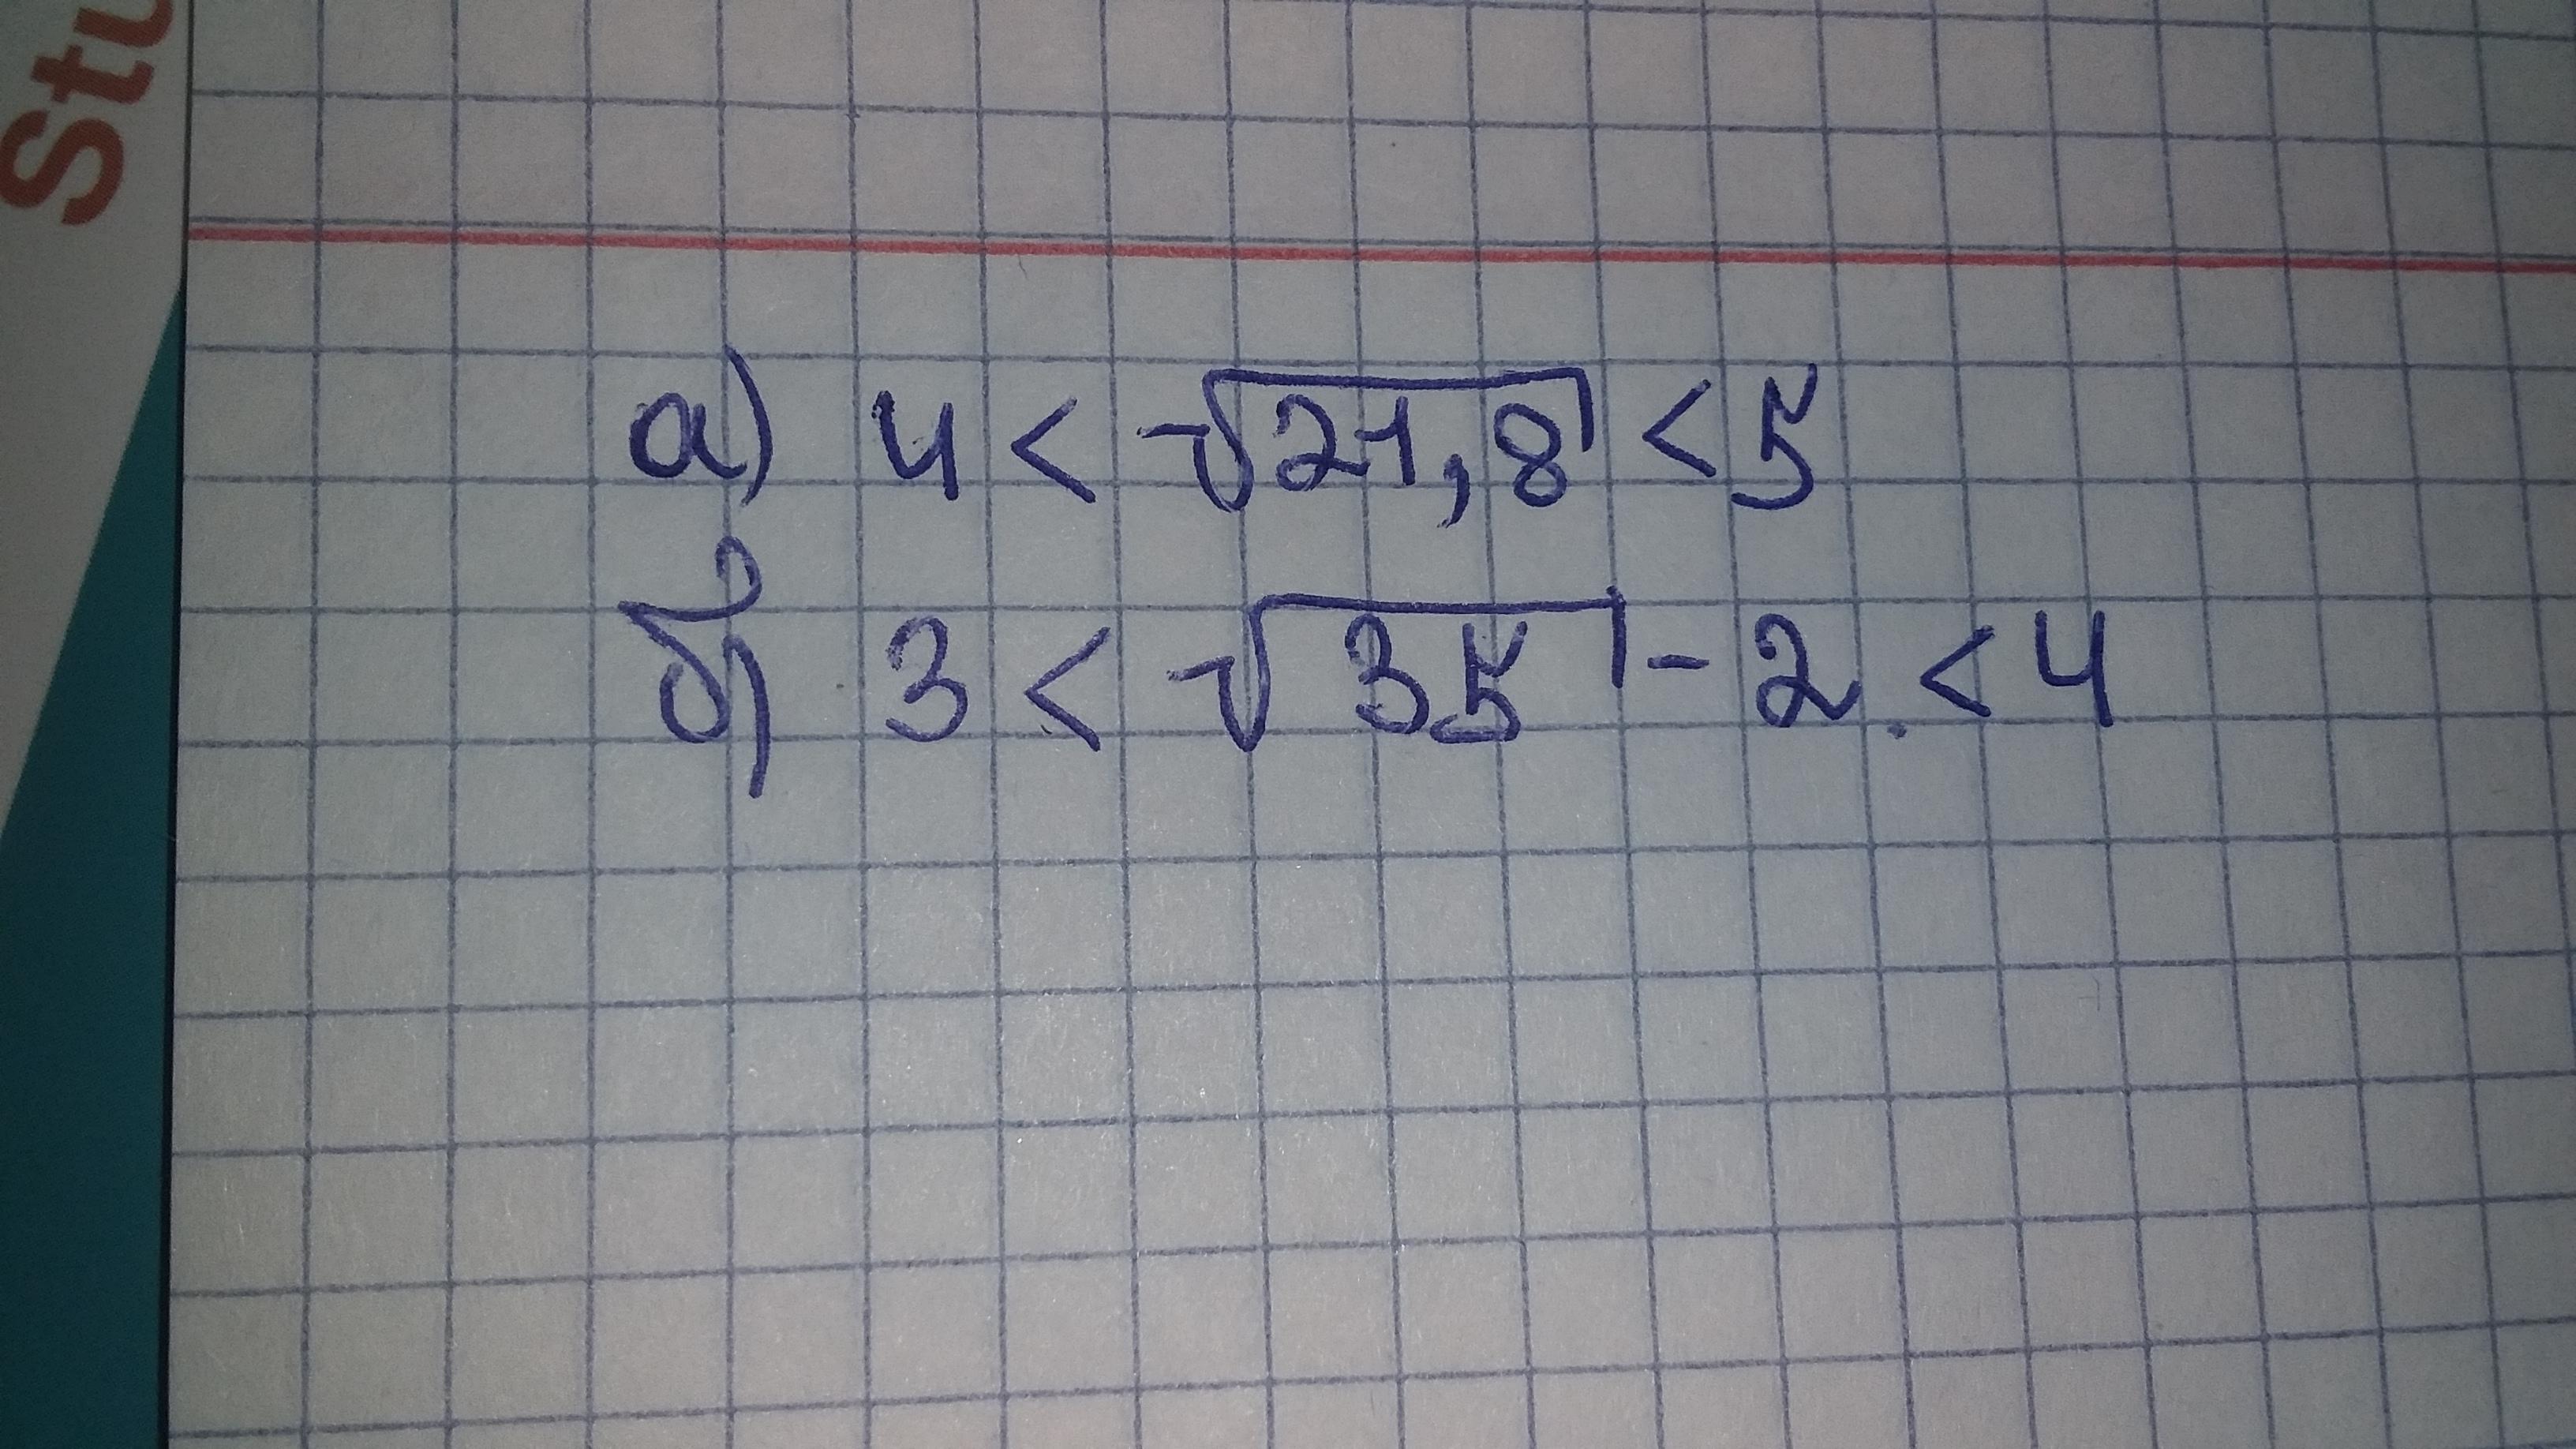 Stu
а) 4 < √21,8 < 5
б) 3 < √35 - 2 < 4